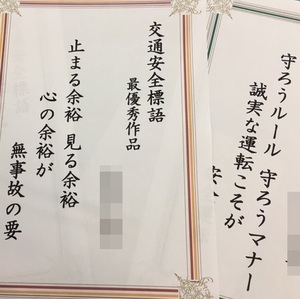 守ろうルール 守ろうマナー
誠実な運転こそが
安
交通安全標語
最優秀作品
止まる余裕 見る余裕
心の余裕が
無事故の要